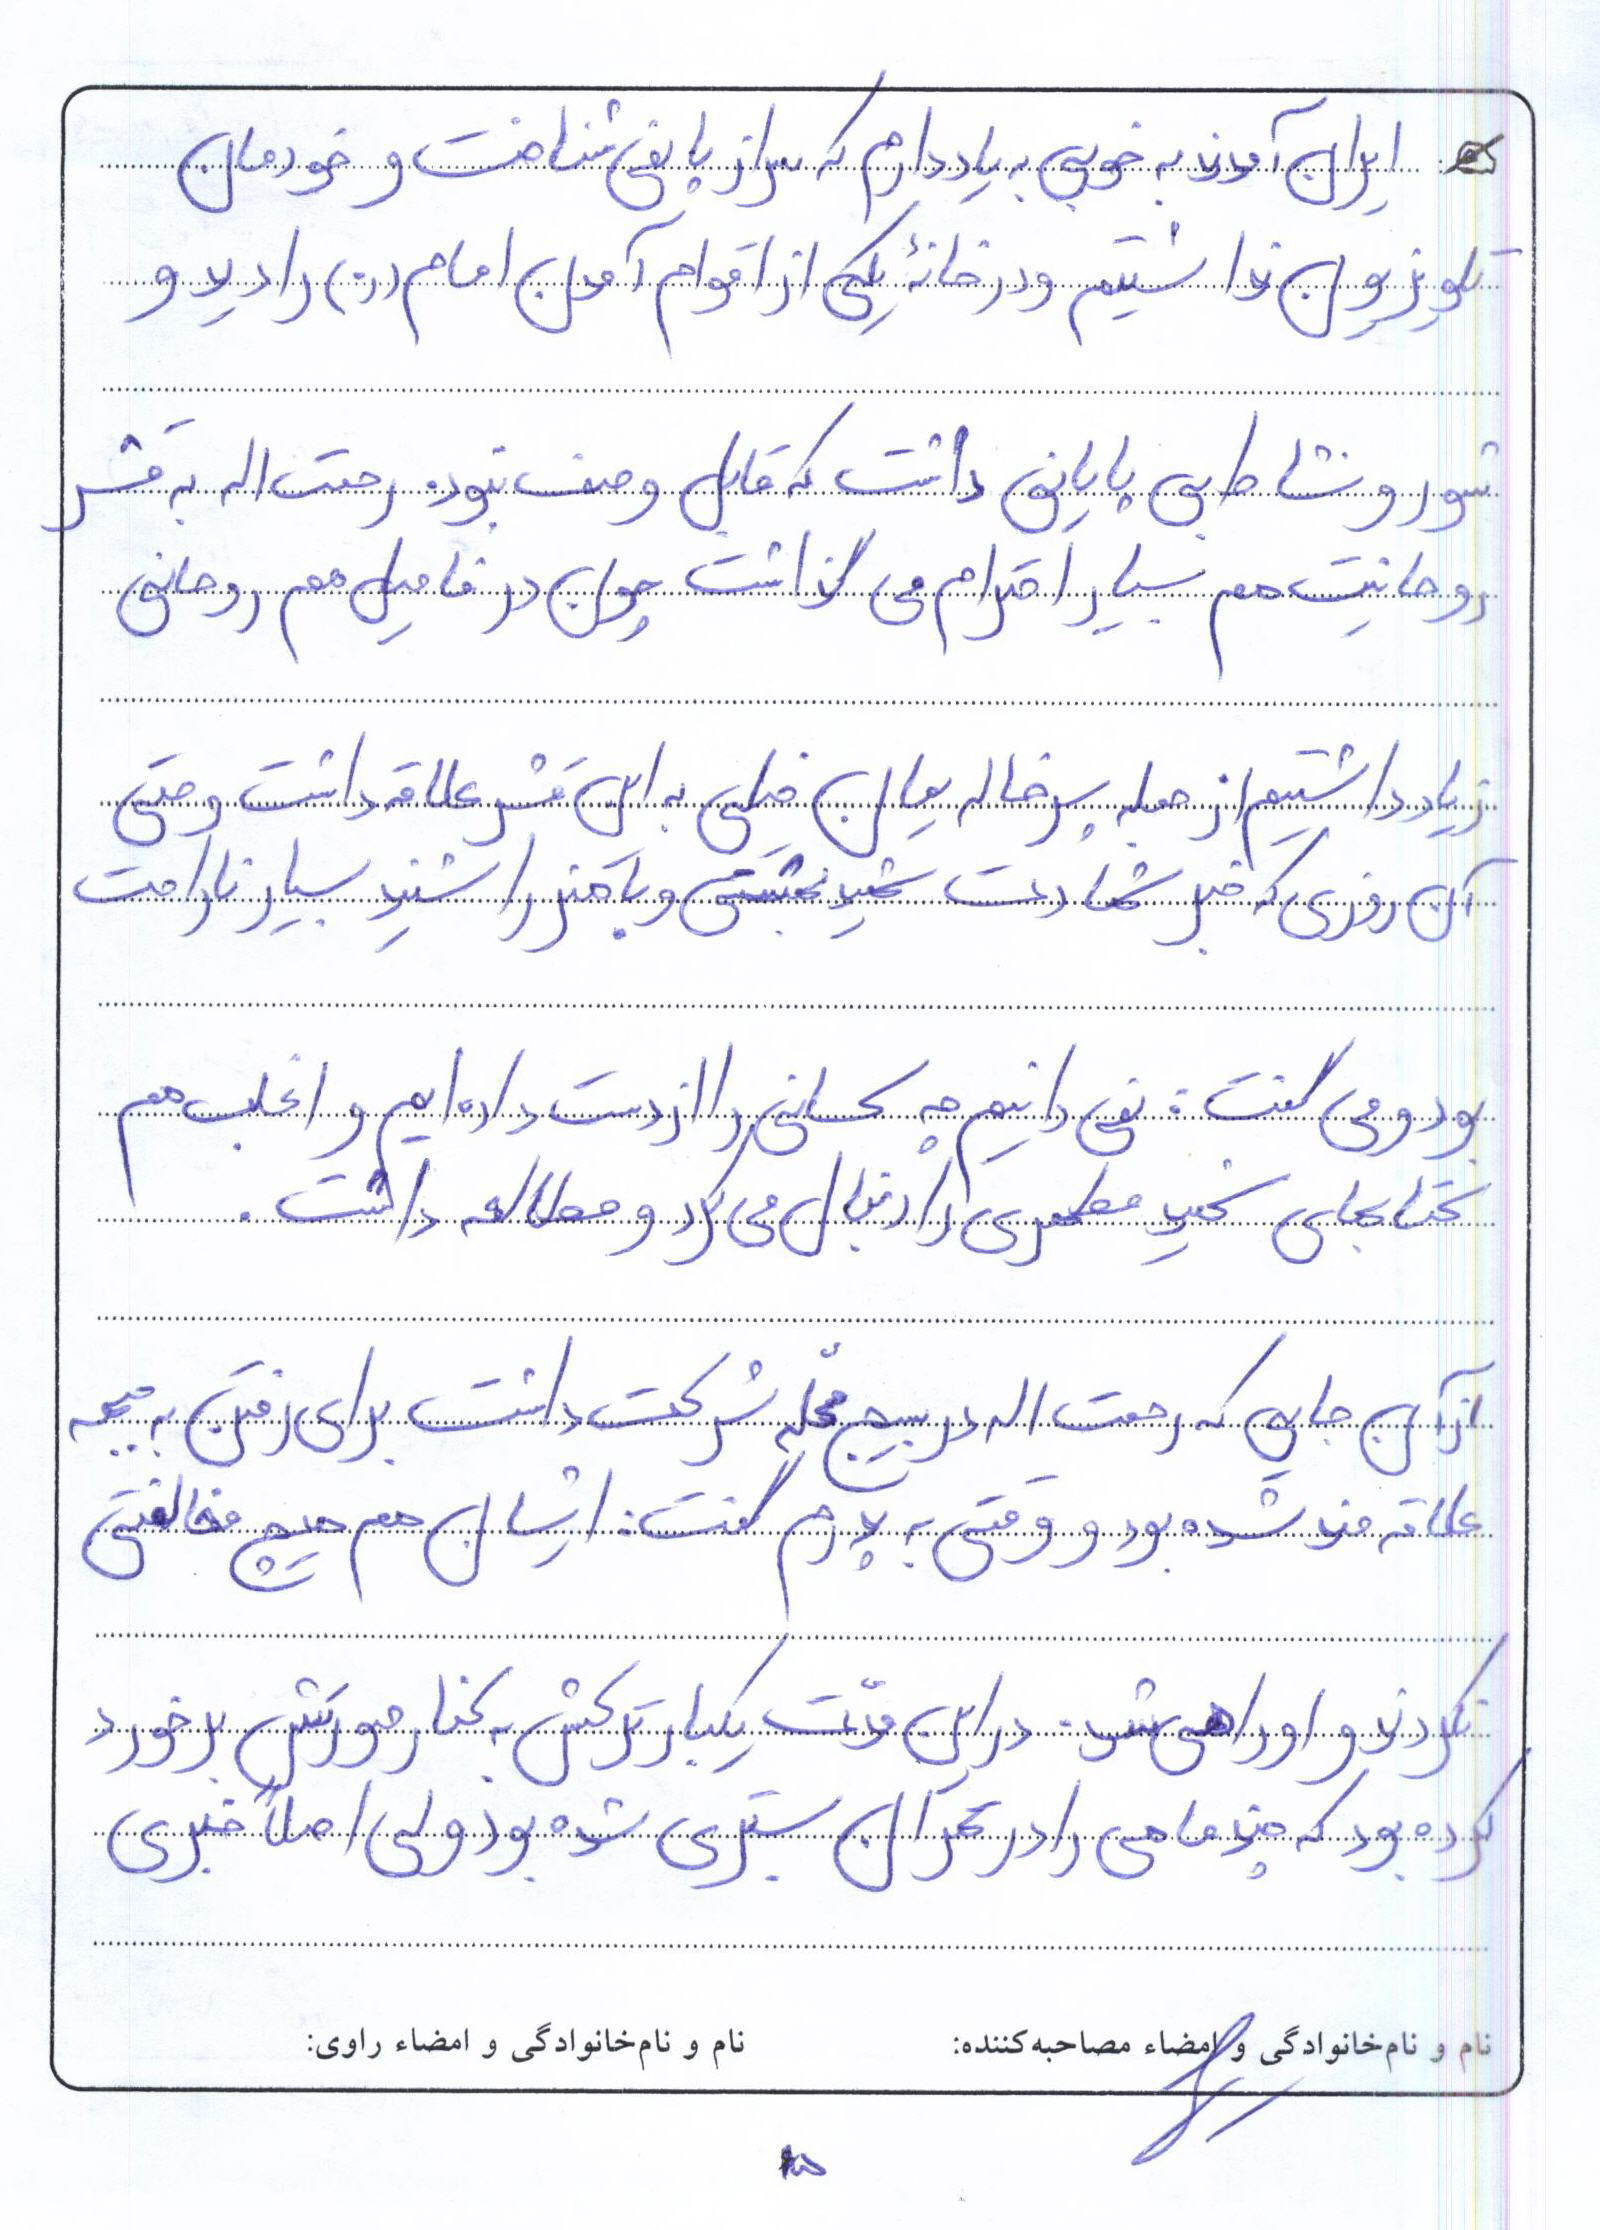 ایران آمدند به خوبی به یاد دارم که سر از پا نمی شناخت و خودمان
تلویزیون نداشتیم و در خانهٔ یکی از اقوام آمدن امام (ره) را دید و
شور و نشاط بی پایانی داشت که قابل وصف نبود. رحمت اله به قشر
روحانیت هم بسیار احترام می گذاشت چون در فامیل هم روحانی
زیاد داشتیم از جمله پسرخاله یمان خیلی به این قشر علاقه داشت و حتی
آن روزی که خبر شهادت شهید بهشتی و باهنر را شنید بسیار ناراحت
بود و می گفت: نمی دانیم چه کسانی را از دست داده ایم و اغلب هم
کتابهای شهید مطهری را دنبال می کرد و مطالعه داشت.
از آن جایی که رحمت اله در بسیج محلّه شرکت داشت برای رفتن به جبهه
علاقه مند شده بود و وقتی به پدرم گفت: ایشان هم هیچ مخالفتی
نکردند و او راهی شد. در این مدّت یکبار ترکش به کنار صورتش برخورد
کرده بود که چند ماهی را در تهران بستری شده بود ولی اصلاً خبری
نام و نام‌خانوادگی و امضاء مصاحبه‌کننده:
نام و نام‌خانوادگی و امضاء راوی: